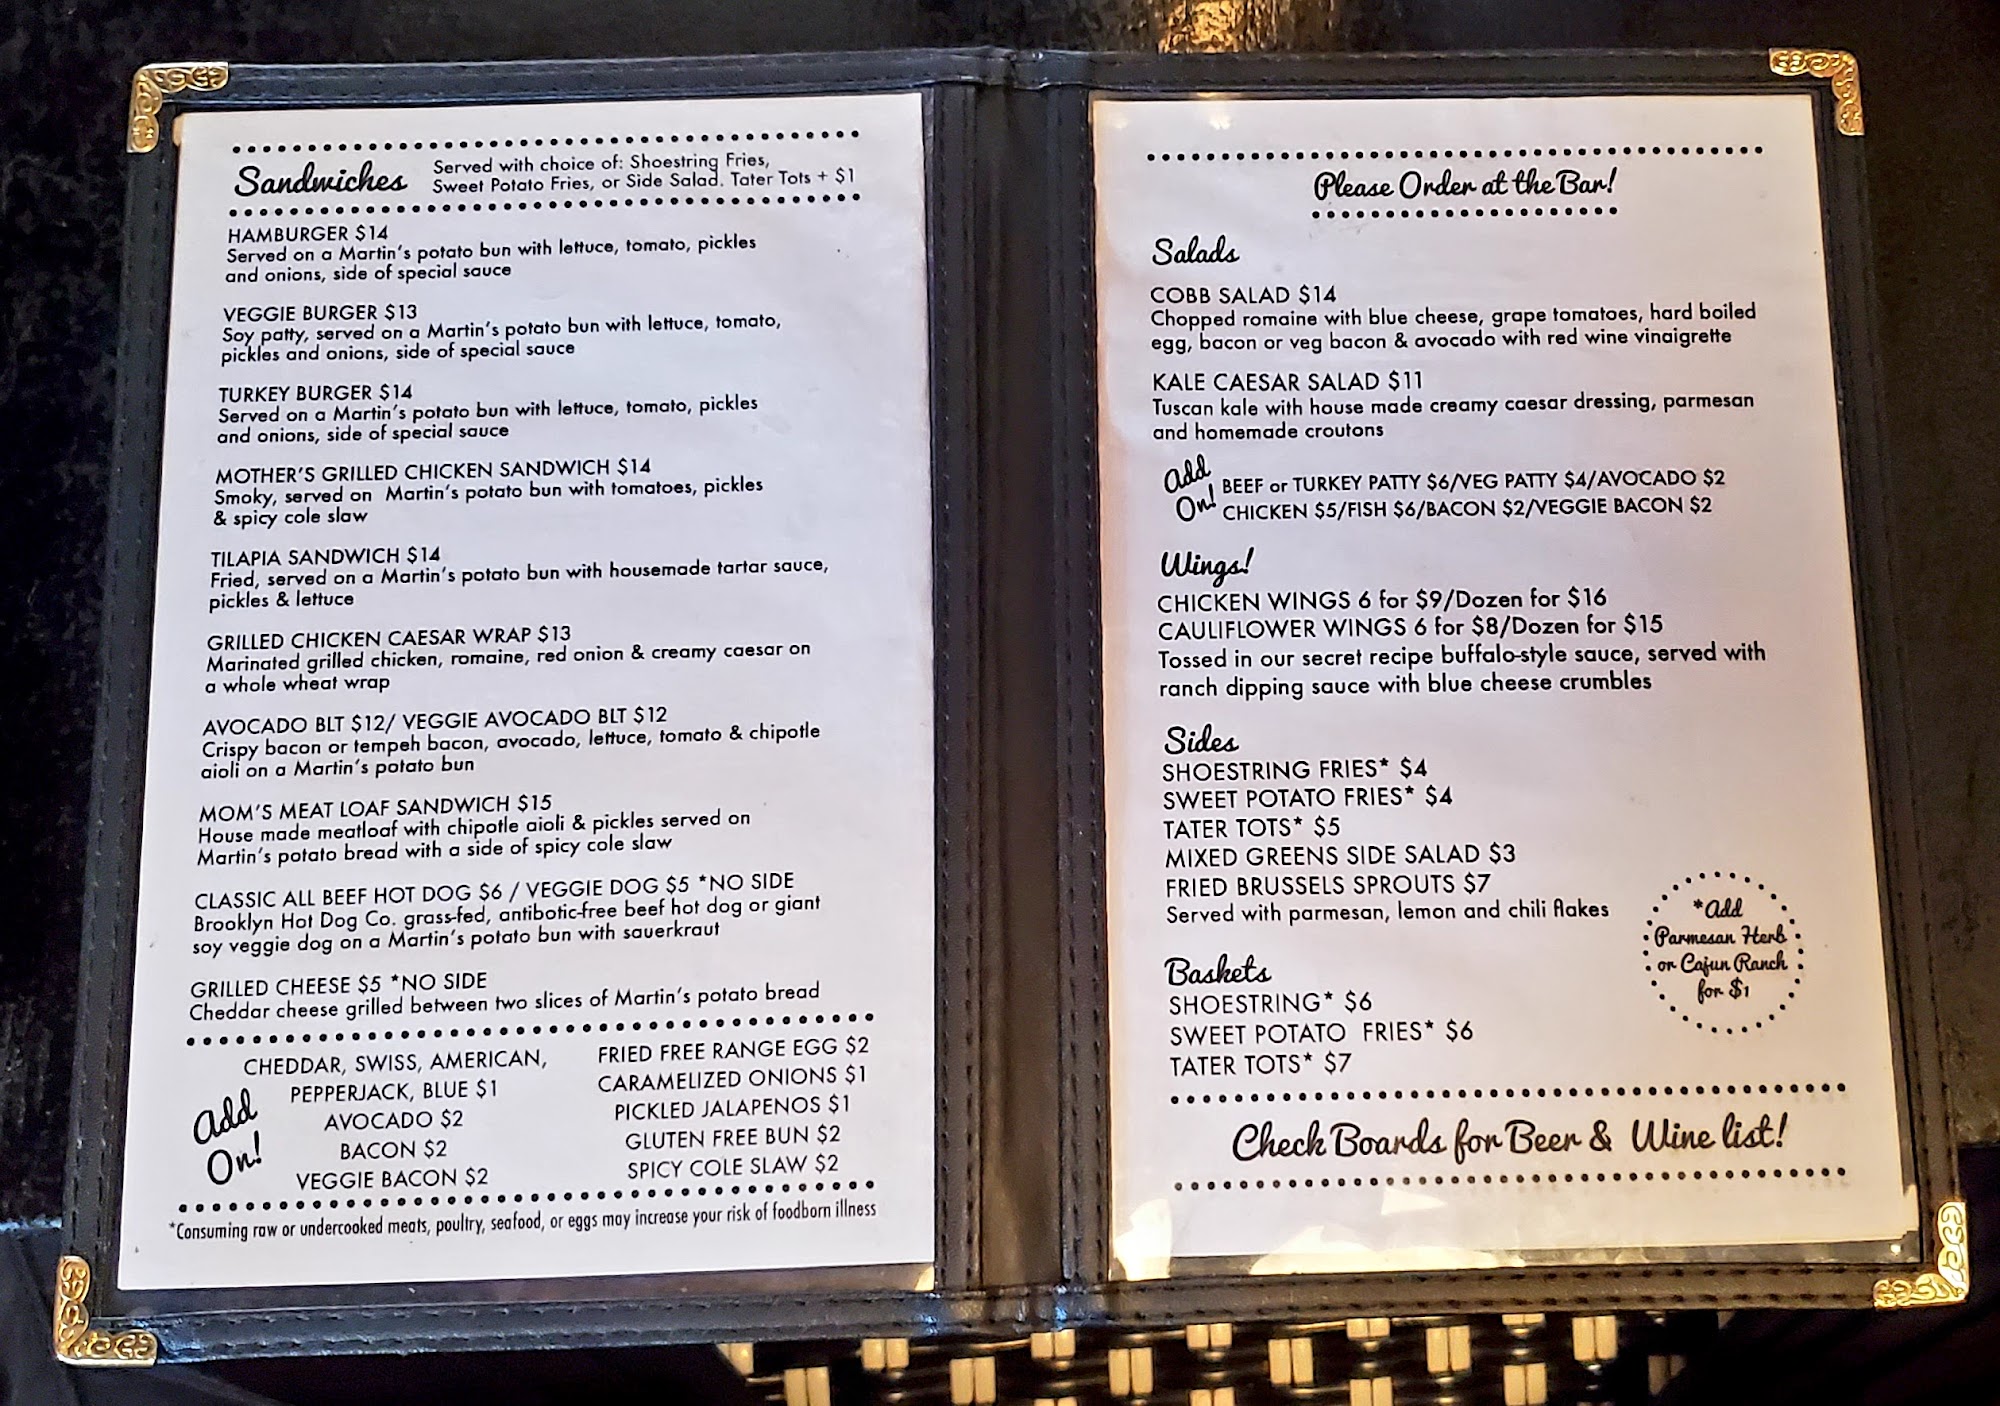 Sandwiches
Served with choice of: Shoestring Fries,
Sweet Potato Fries, or Side Salad. Tater Tots + $1
HAMBURGER $14
Served on a Martin's potato bun with lettuce, tomato, pickles
and onions, side of special sauce
VEGGIE BURGER $13
Soy patty, served on a Martin's potato bun with lettuce, tomato,
pickles and onions, side of special sauce
TURKEY BURGER $14
Served on a Martin's potato bun with lettuce, tomato, pickles
and onions, side of special sauce
MOTHER'S GRILLED CHICKEN SANDWICH $14
Smoky, served on Martin's potato bun with tomatoes, pickles
& spicy cole slaw
TILAPIA SANDWICH $14
Fried, served on a Martin's potato bun with housemade tartar sauce,
pickles & lettuce
GRILLED CHICKEN CAESAR WRAP $13
Marinated grilled chicken, romaine, red onion & creamy caesar on
a whole wheat wrap
AVOCADO BLT $12/ VEGGIE AVOCADO BLT $12
Crispy bacon or tempeh bacon, avocado, lettuce, tomato & chipotle
aioli on a Martin's potato bun
MOM'S MEAT LOAF SANDWICH $15
House made meatloaf with chipotle aioli & pickles served on
Martin's potato bread with a side of spicy cole slaw
CLASSIC ALL BEEF HOT DOG $6 / VEGGIE DOG $5 *NO SIDE
Brooklyn Hot Dog Co. grass-fed, antibotic-free beef hot dog or giant
soy veggie dog on a Martin's potato bun with sauerkraut
GRILLED CHEESE $5 *NO SIDE
Cheddar cheese grilled between two slices of Martin's potato bread
Add
On!
CHEDDAR, SWISS, AMERICAN,
PEPPERJACK, BLUE $1
AVOCADO $2
BACON $2
VEGGIE BACON $2
FRIED FREE RANGE EGG $2
CARAMELIZED ONIONS $1
PICKLED JALAPENOS $1
GLUTEN FREE BUN $2
SPICY COLE SLAW $2
*Consuming raw or undercooked meats, poultry, seafood, or eggs may increase your risk of foodborn illness
Please Order at the Bar!
Salads
COBB SALAD $14
Chopped romaine with blue cheese, grape tomatoes, hard boiled
egg, bacon or veg bacon & avocado with red wine vinaigrette
KALE CAESAR SALAD $11
Tuscan kale with house made creamy caesar dressing, parmesan
and homemade croutons
Add
On!
BEEF or TURKEY PATTY $6/VEG PATTY $4/AVOCADO $2
CHICKEN $5/FISH $6/BACON $2/VEGGIE BACON $2
Wings!
CHICKEN WINGS 6 for $9/Dozen for $16
CAULIFLOWER WINGS 6 for $8/Dozen for $15
Tossed in our secret recipe buffalo-style sauce, served with
ranch dipping sauce with blue cheese crumbles
Sides
SHOESTRING FRIES* $4
SWEET POTATO FRIES* $4
TATER TOTS* $5
MIXED GREENS SIDE SALAD $3
FRIED BRUSSELS SPROUTS $7
Served with parmesan, lemon and chili flakes
*Add
Parmesan Herb
or Cajun Ranch
for $1
Baskets
SHOESTRING* $6
SWEET POTATO FRIES* $6
TATER TOTS* $7
Check Boards for Beer & Wine list!